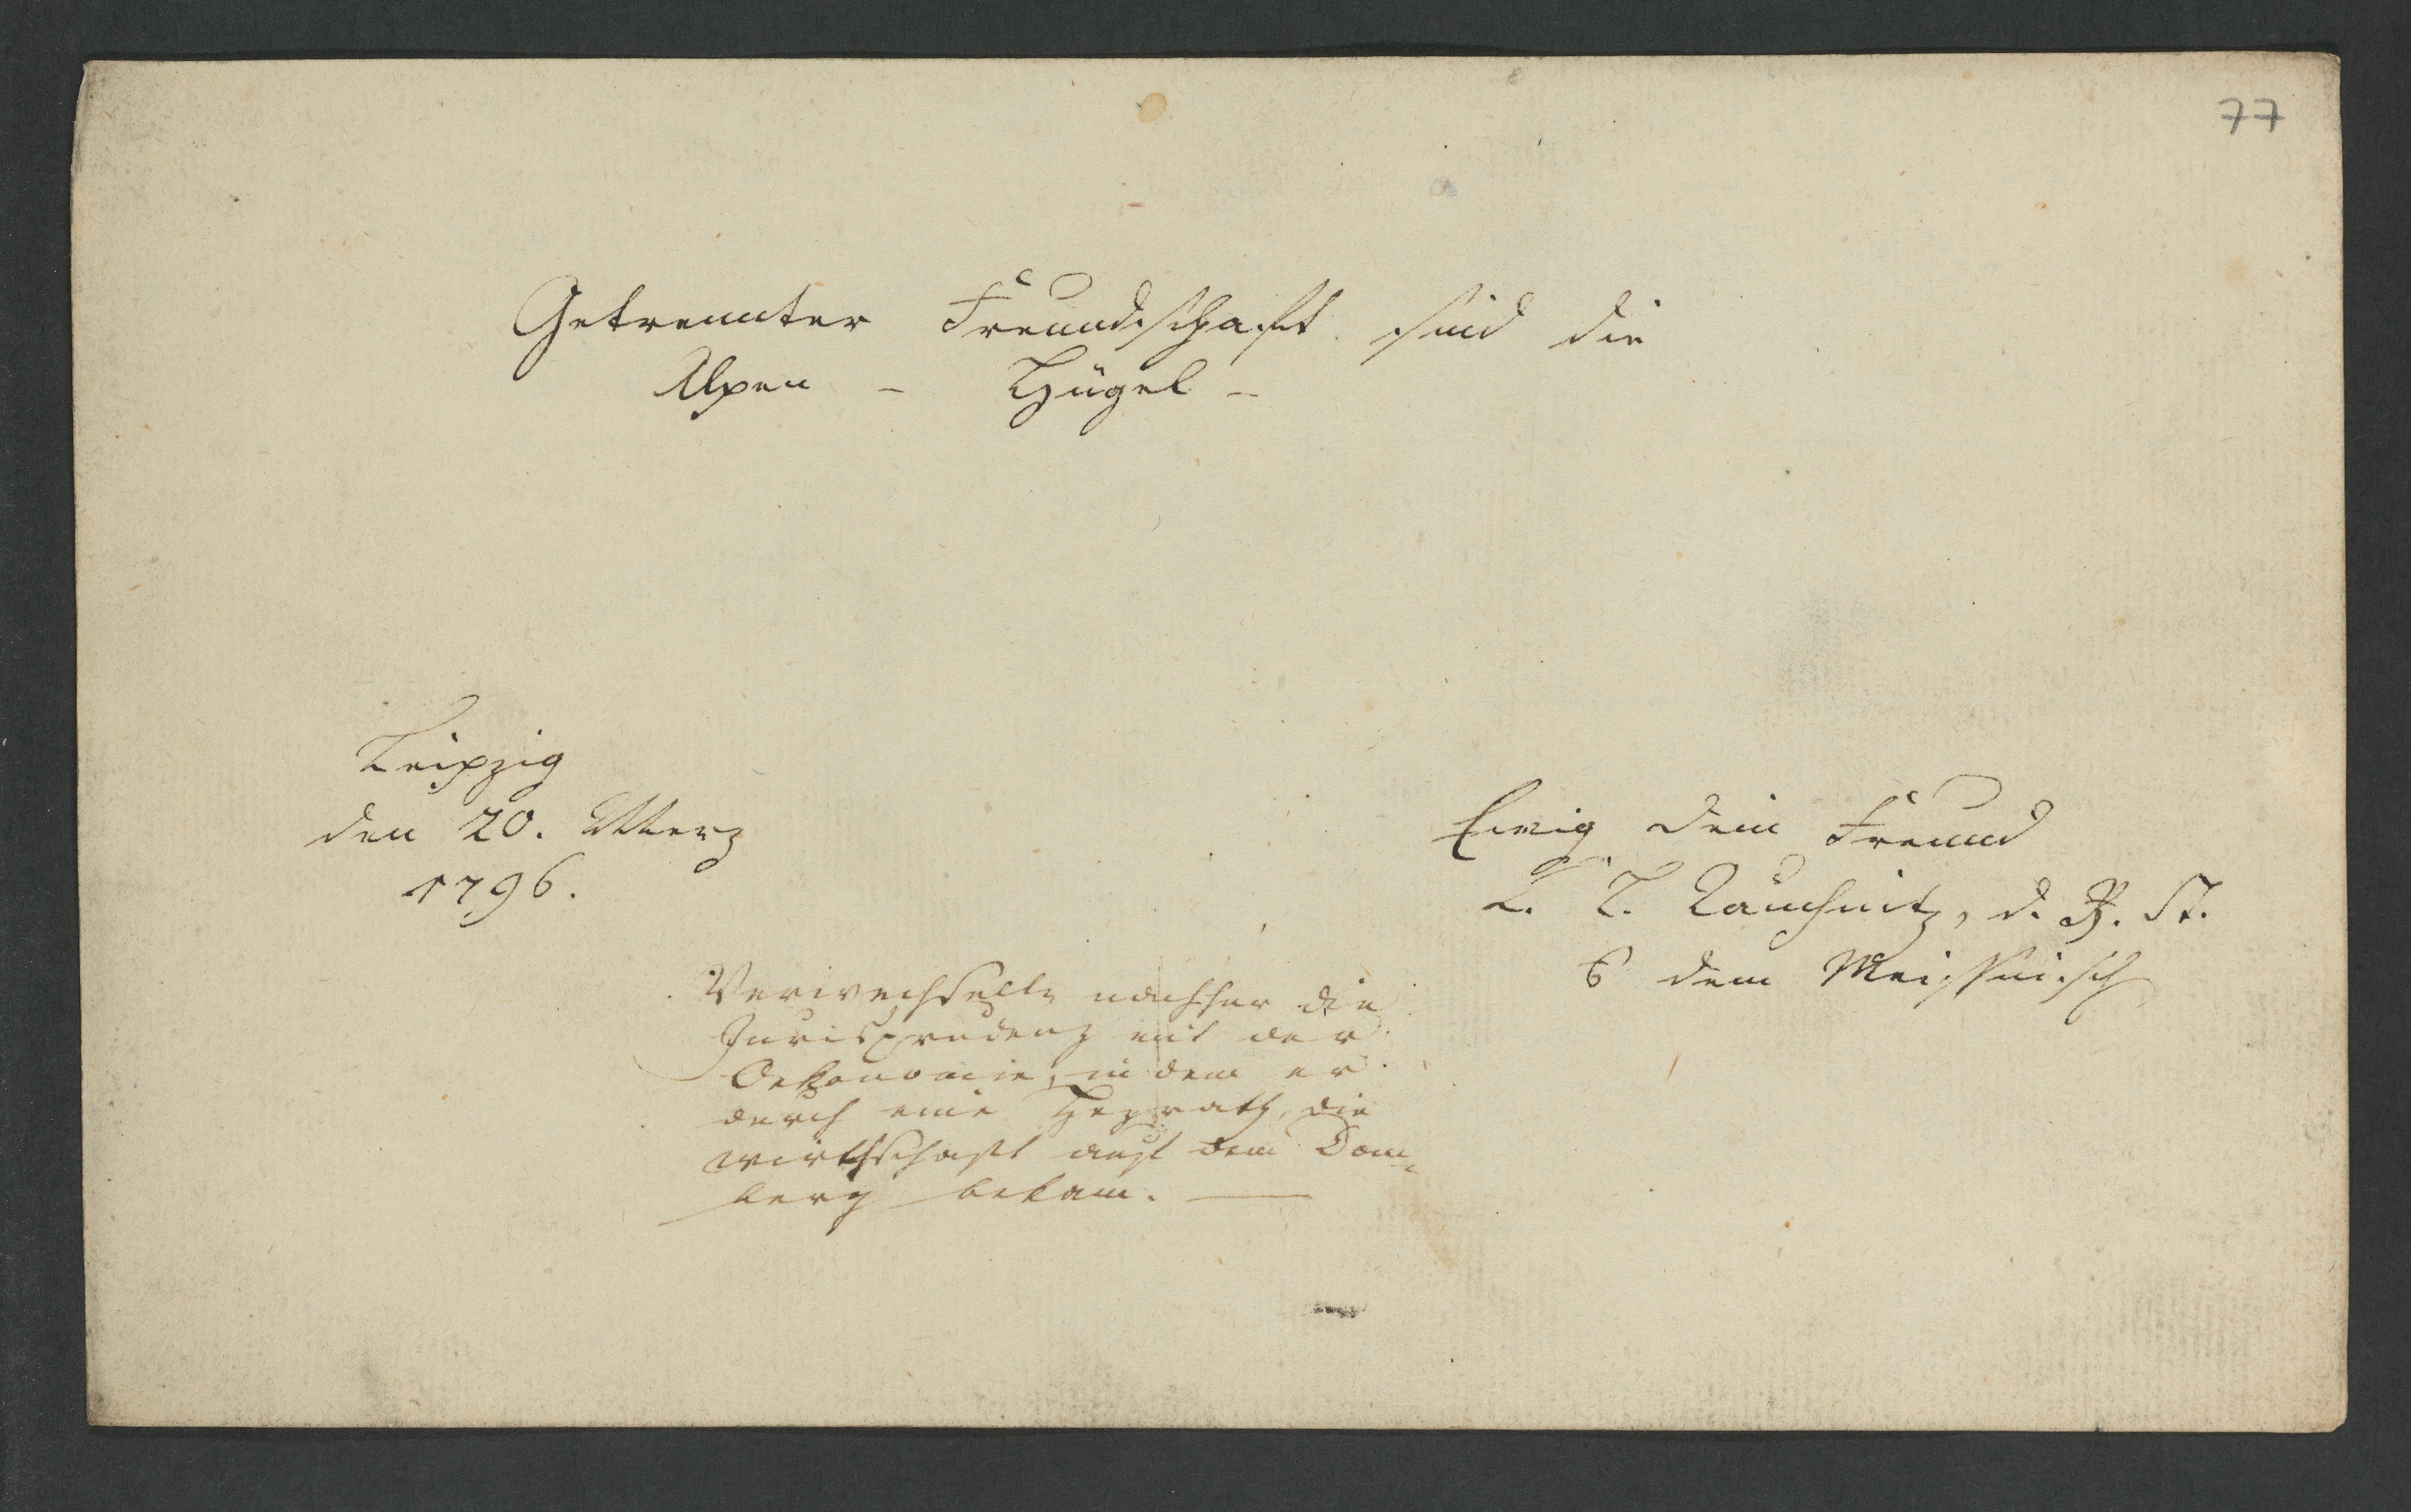 77
Getrennter Freundschaft sind die
Alpen – Hügel –
Leipzig
den 20. Merz
1796.
Ewig dein Freund
d. R. St.
dem Meissnisch
Verwechselte nachher die
Jurisprudenz mit der
Oekonomie, indem er
durch eine Heyrath, die
wirthschaft auf dem Dom=
berg bekam. —